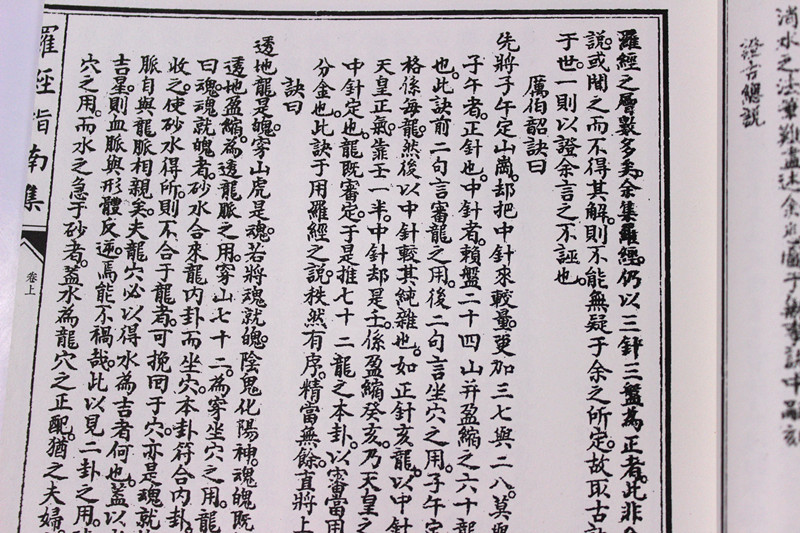 羅經之層數多矣。余集羅經。仍以三針三盤為正者。此非
說。或閱之而不得其解。則不能無疑于余之所定。故取古
于世。一則以證余言之不誣也。
厲伯韶訣曰
先將子午定山崗。却把中針來較量。更加三七與二八。莫與
子午者。正針也。中針者。賴盤二十四山并盈縮之六十龍
也。此訣前二句言審龍之用。後二句言坐穴之用。子午定
格係每龍。然後以中針較其純雜也。如正針亥龍。以中針
天皇正氣。靠壬一半。中針却是壬。係盈縮癸亥。乃天皇之
中針定也。龍既審定。于是推七十二龍之本卦。以審當用
分金也。此訣于用羅經之說。秩然有序。精當無餘。直將上
訣曰
透地龍是魄。穿山虎是魂。若將魂就魄。陰鬼化陽神。魂魄既
透地盈縮。為透龍脈之用。穿山七十二。為穿坐穴之用。龍
曰魂。魂就魄者。砂水合來龍內卦。而坐穴本卦符合內卦。
收之。使砂水得所。則不合于龍者。可挽回于穴。亦是魂就
脈自與龍脈相親矣。夫龍穴必以得水為吉者何也。蓋以
吉星。則血脈與形體反逆。焉能不禍哉。此以見二卦之用。
穴之用。而水之急于砂者。蓋水為龍穴之正配。猶之夫婦
羅經指南集
卷上
消水之法
證古總說